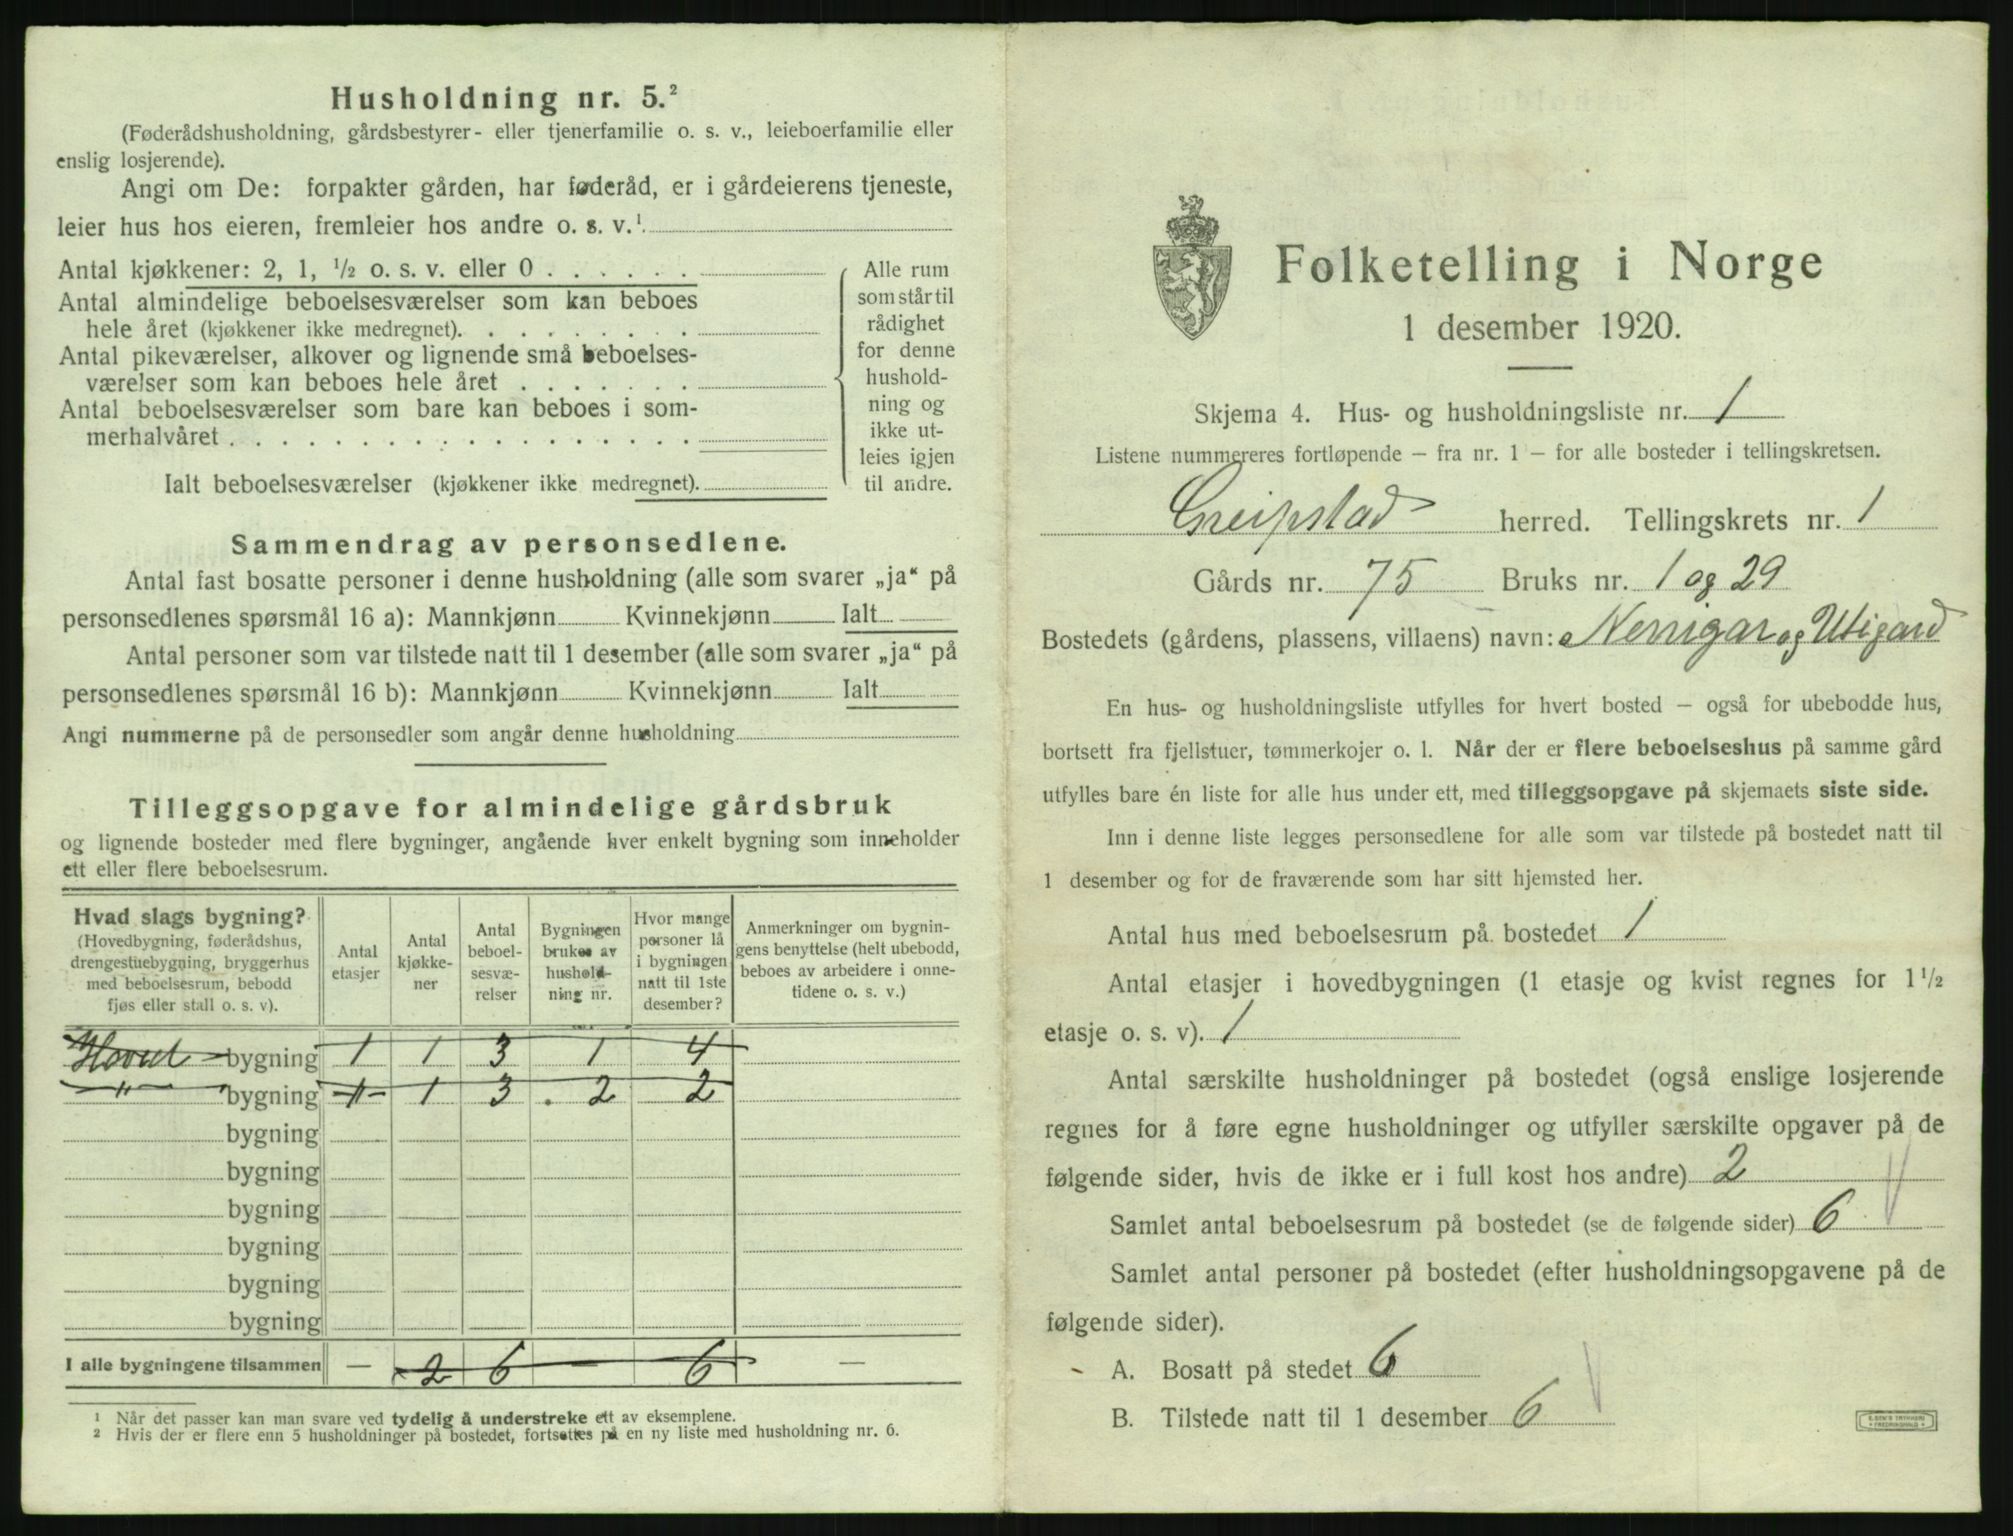 Husholdning nr. 5.²
(Føderådshusholdning, gårdsbestyrer- eller tjenerfamilie o. s. v., leieboerfamilie eller
enslig losjerende).
Angi om De: forpakter gården, har føderåd, er i gårdeierens tjeneste,
leier hus hos eieren, fremleier hos andre o. s. v.¹
Antal kjøkkener: 2, 1, ½ o. s. v. eller 0 . . . . . .
Antal almindelige beboelsesværelser som kan beboes
hele året (kjøkkener ikke medregnet). . . . . . . . .
Antal pikeværelser, alkover og lignende små beboelses-
værelser som kan beboes hele året . . . . . . .
Antal beboelsesværelser som bare kan beboes i som-
merhalvåret . . . . . . . . . . . . . . . . . .
Ialt beboelsesværelser (kjøkkener ikke medregnet).
Alle rum
som står til
rådighet
for denne
hushold-
ning og
ikke ut-
leies igjen
til andre.
Sammendrag av personsedlene.
Antal fast bosatte personer i denne husholdning (alle som svarer „ja“ på
personsedlenes spørsmål 16 a): Mannkjønn Kvinnekjønn Ialt
Antal personer som var tilstede natt til 1 desember (alle som svarer „ja“ på
personsedlenes spørsmål 16 b): Mannkjønn Kvinnekjønn Ialt
Angi nummerne på de personsedler som angår denne husholdning
Tilleggsopgave for almindelige gårdsbruk
og lignende bosteder med flere bygninger, angående hver enkelt bygning som inneholder
ett eller flere beboelsesrum.
Hvad slags bygning?
(Hovedbygning, føderådshus,
drengestuebygning, bryggerhus
med beboelsesrum, bebodd
fjøs eller stall o. s. v).
Antal
etasjer
Antal
kjøkke-
ner
Antal
beboel-
sesvæ-
relser
Bygningen
brukes av
hushold-
ning nr.
Hvor mange
personer lå
i bygningen
natt til 1ste
desember?
Anmerkninger om bygnin-
gens benyttelse (helt ubebodd,
beboes av arbeidere i onne-
tidene o. s. v.)
Hoved - bygning 1 1 3 1 4
" bygning 1 1 3 2 2
bygning
bygning
bygning
bygning
bygning
bygning
I alle bygningene tilsammen — 2 6 — 6 —
¹ Når det passer kan man svare ved tydelig å understreke ett av eksemplene.
² Hvis der er flere enn 5 husholdninger på bostedet, fortsettes på en ny liste med husholdning nr. 6.
Folketelling i Norge
1 desember 1920.
Skjema 4. Hus- og husholdningsliste nr. 1
Listene nummereres fortløpende – fra nr. 1 – for alle bosteder i tellingskretsen.
Greipstad herred. Tellingskrets nr. 1
Gårds nr. 75 Bruks nr. 1 og 29
Bostedets (gårdens, plassens, villaens) navn: Nerrigar og Utigard
En hus- og husholdningsliste utfylles for hvert bosted – også for ubebodde hus,
bortsett fra fjellstuer, tømmerkojer o. l. Når der er flere beboelseshus på samme gård
utfylles bare én liste for alle hus under ett, med tilleggsopgave på skjemaets siste side.
Inn i denne liste legges personsedlene for alle som var tilstede på bostedet natt til
1 desember og for de fraværende som har sitt hjemsted her.
Antal hus med beboelsesrum på bostedet 1
Antal etasjer i hovedbygningen (1 etasje og kvist regnes for 1½
etasje o. s. v). 1
Antal særskilte husholdninger på bostedet (også enslige losjerende
regnes for å føre egne husholdninger og utfyller særskilte opgaver på de
følgende sider, hvis de ikke er i full kost hos andre) 2
Samlet antal beboelsesrum på bostedet (se de følgende sider) 6
Samlet antal personer på bostedet (efter husholdningsopgavene på de
følgende sider).
A. Bosatt på stedet 6
B. Tilstede natt til 1 desember 6